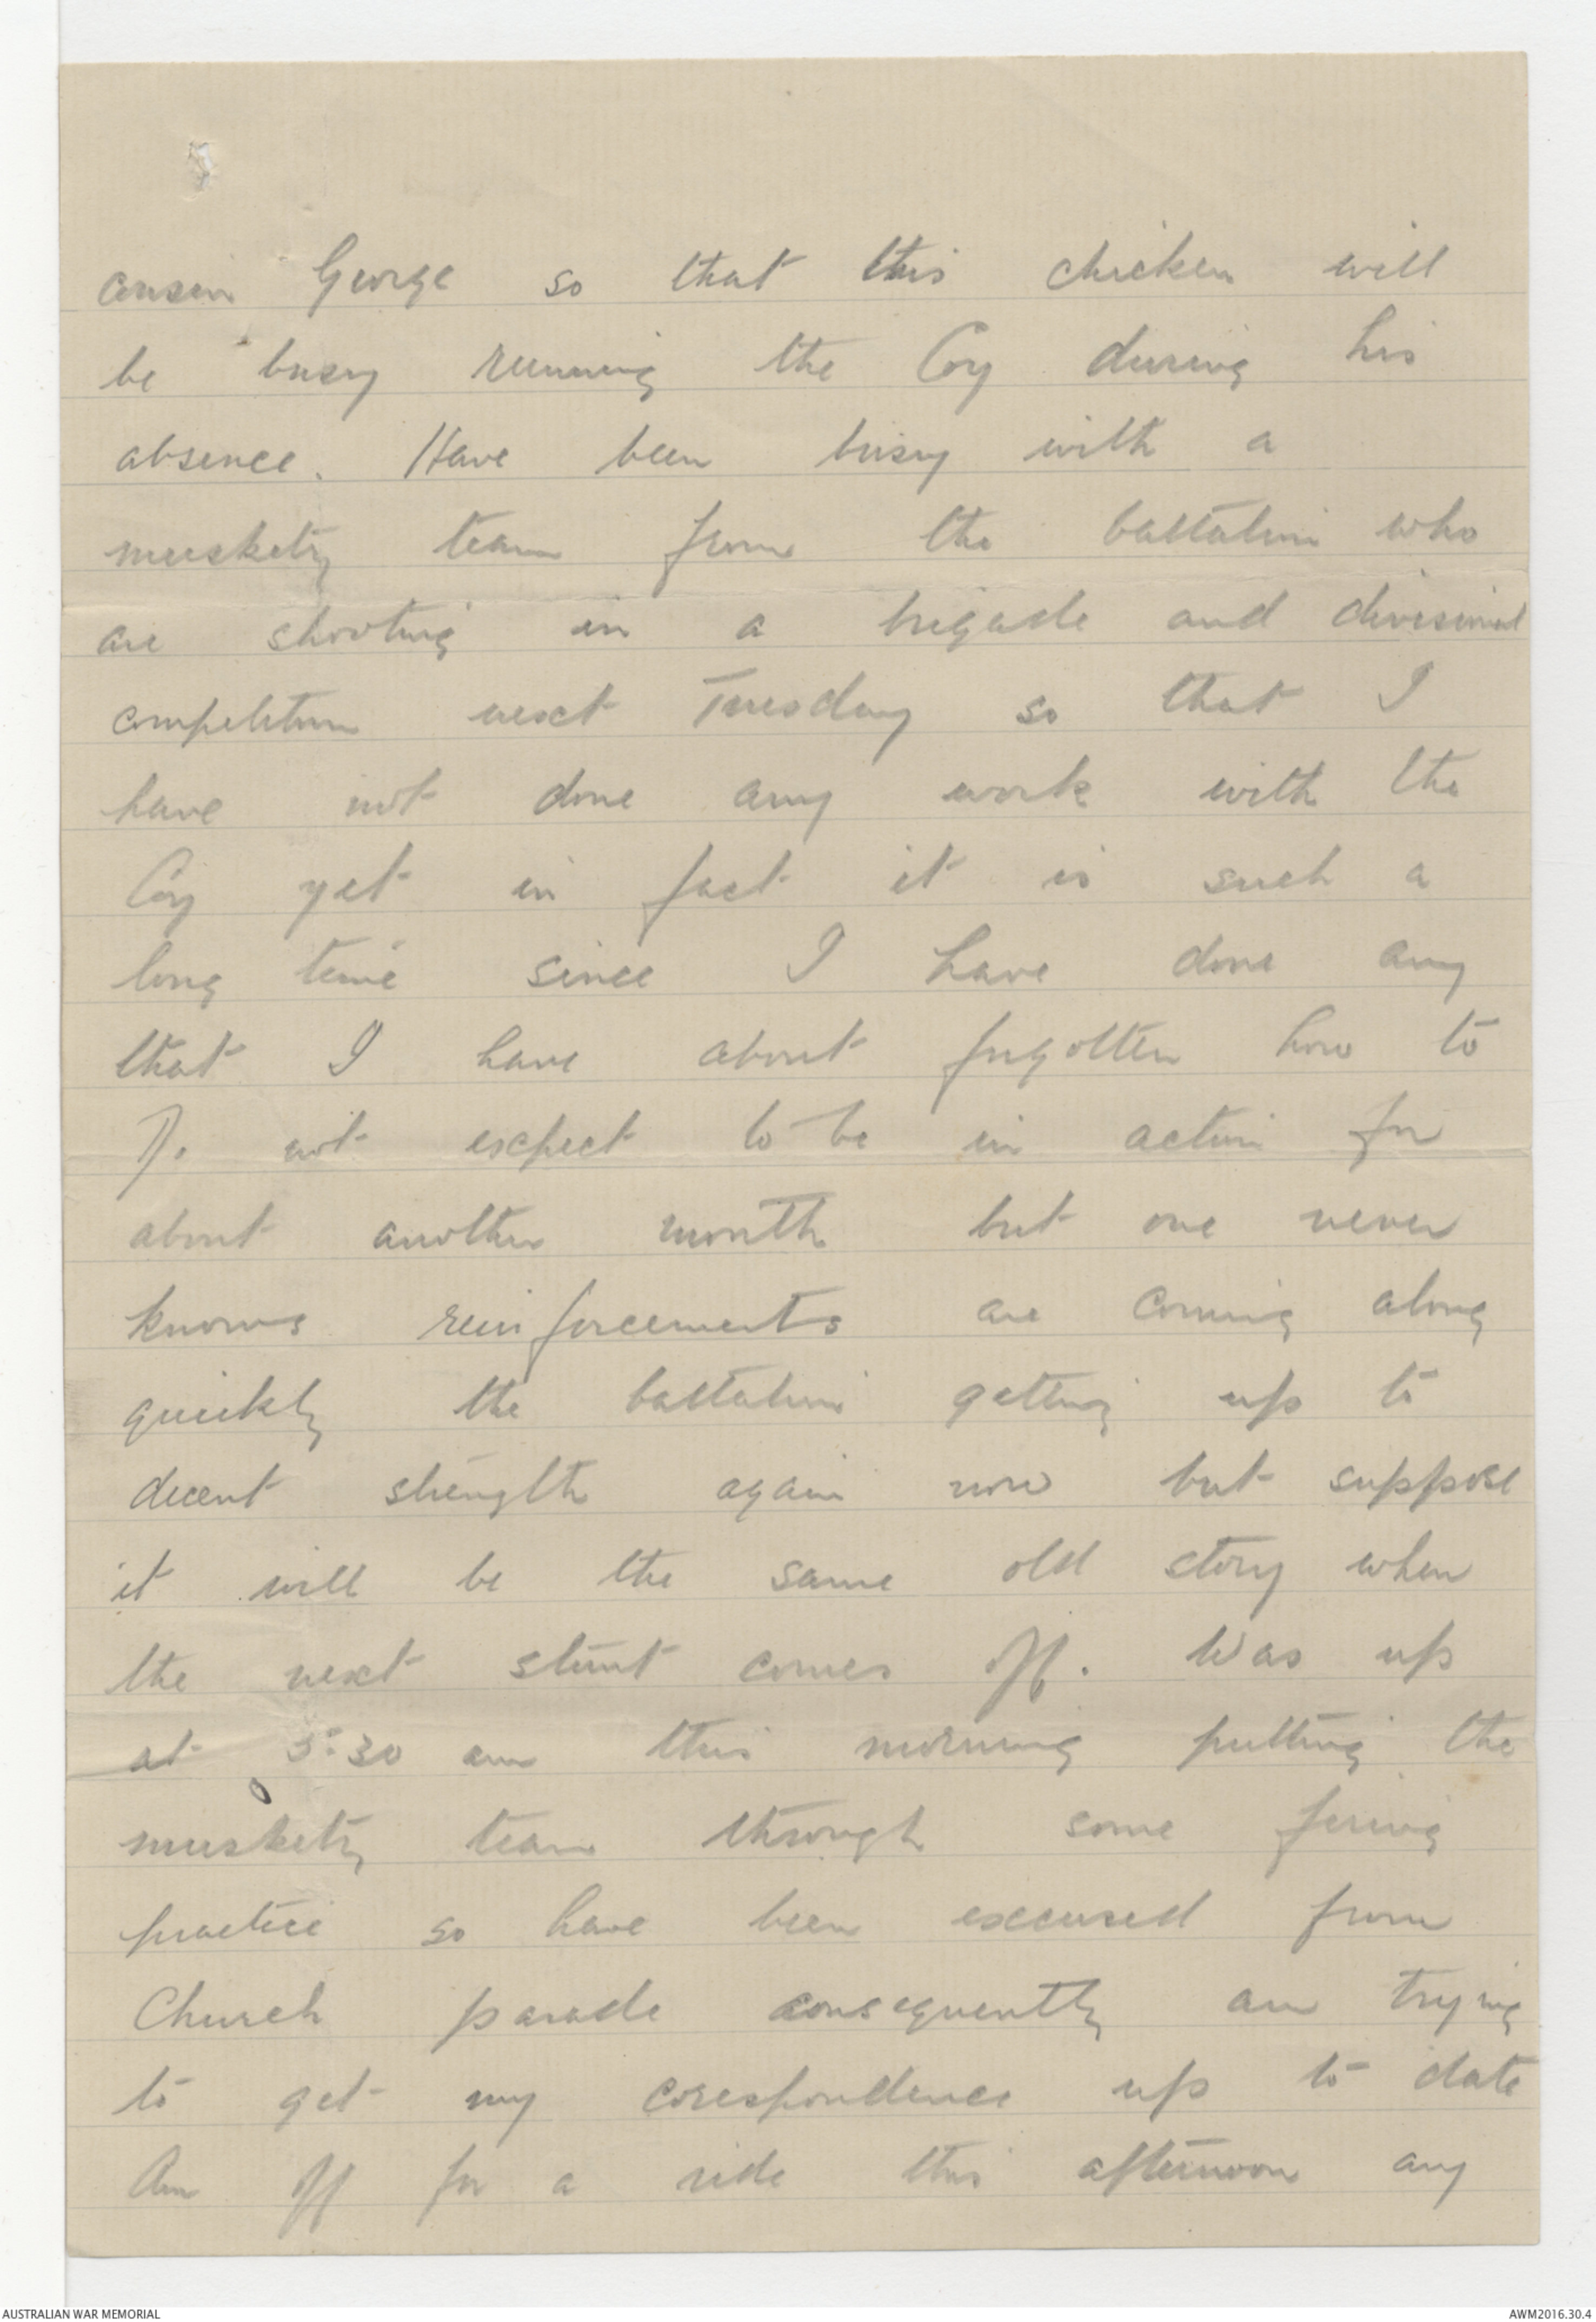 cousin George so that this chicken will
be busy running the Coy during his
absence. Have been busy with a
musketry team from the battalion who
are shooting in a brigade and divisional
competition next Tuesday so that I
have not done any work with the
Coy yet in fact it is such a
long time since I have done any
that I have about forgotten how to
Do not expect to be in action for
about another month but one never
knows reinforcements are coming along
quickly the battalion getting up to
decent strength again now but suppose
it will be the same old story when
the next stunt comes off. Was up
at 5:30 am this morning putting the
musketry team through some firing
practice so have been excused from
Church parade consequently am trying
to get my corespondence up to date
Am off for a ride this afternoon any
AUSTRALIAN WAR MEMORIAL
AWM2016.30.4